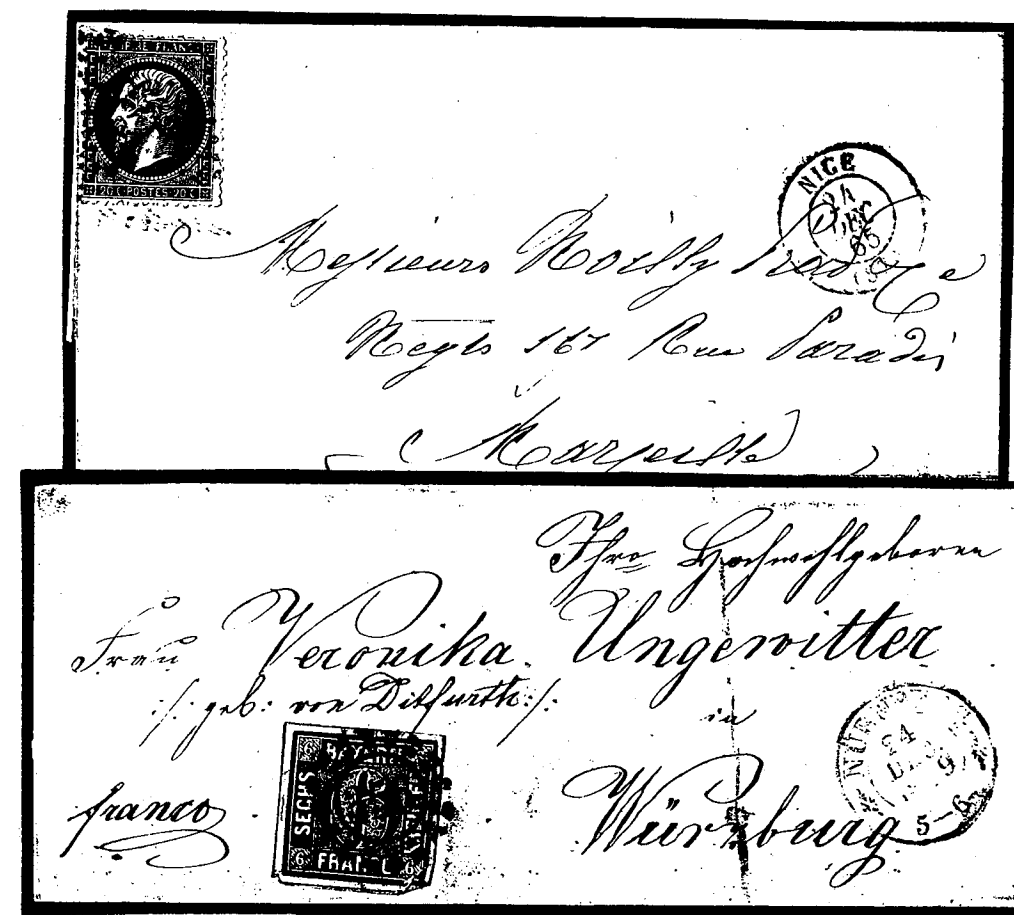 EMPIRE FRANC
20 C POSTES 20 C
NICE
24
DEC
65
Messieurs Noilly Prat & Cie
Negts 167 Rue Paradis
Marseille
Ihro Hochwohlgeboren
Frau Veronika Ungewitter
:/: geb: von Ditfurth :/:
in
Würzburg
franco
6 BAYERN
SECHS
6
FRANCO
6 6
NÜRN
24
DEC
9
5-6